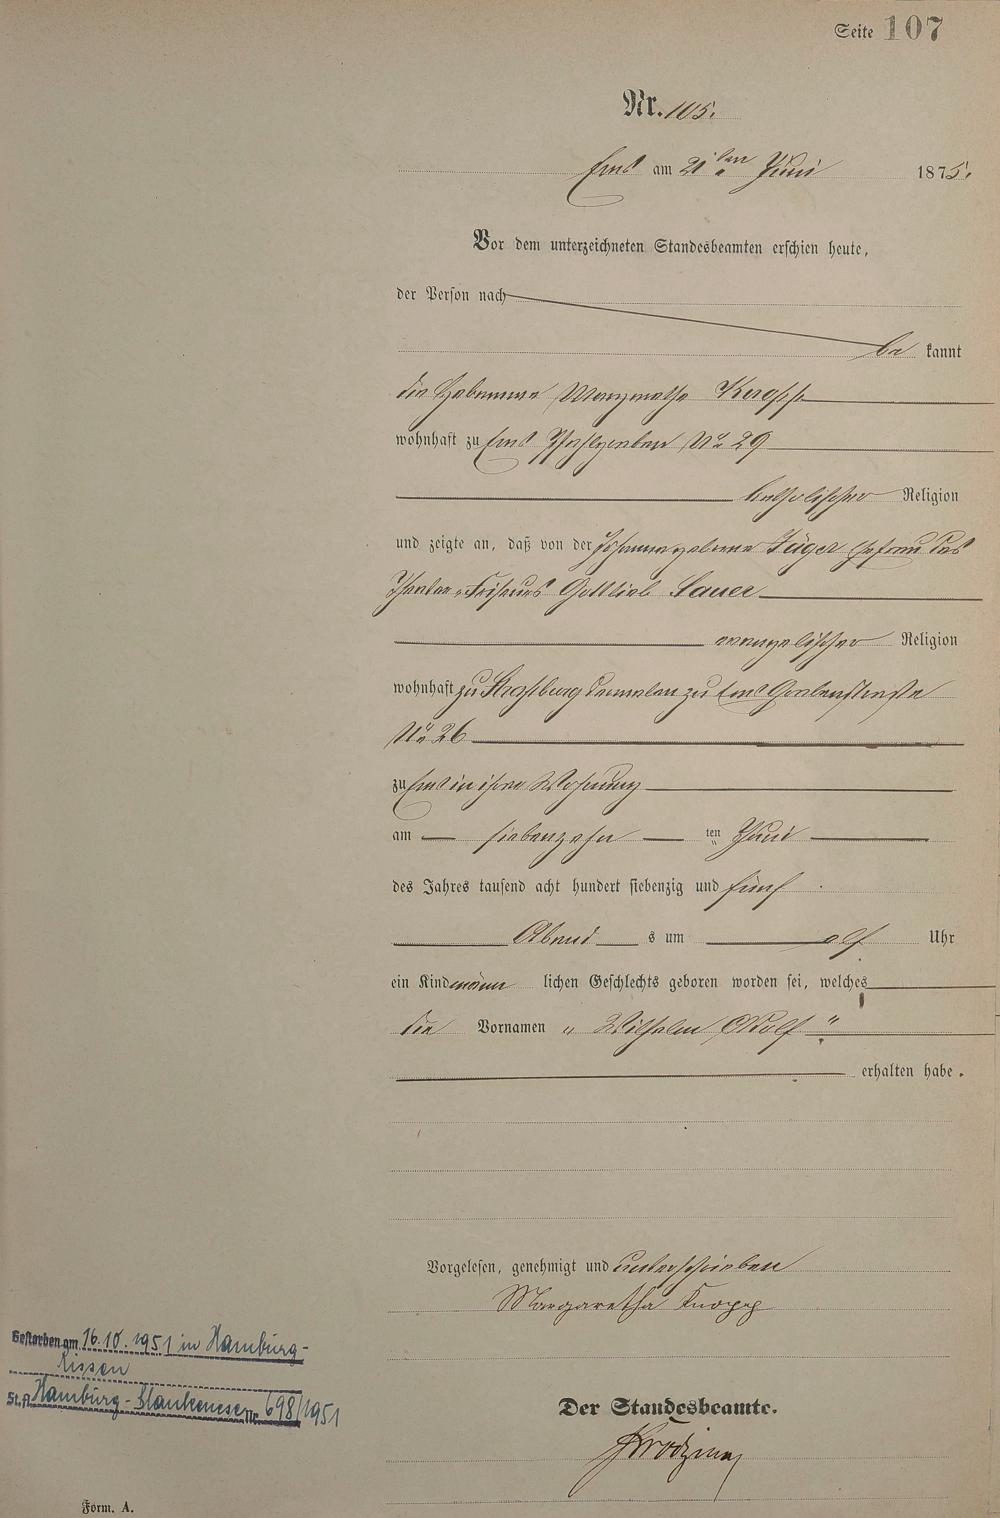 Seite 107
Nr. 105.
Ems am 21ten Juni 1875.
Vor dem unterzeichneten Standesbeamten erschien heute,
der Person nach
be kannt
die Hebamme Margaretha Knopp
wohnhaft zu Ems Pfahlgraben No 29
katholischer Religion
und zeigte an, daß von der Johanna geborene Jäger Ehefrau des
Theater-Friseurs Gottlieb Sauer
evangelischer Religion
wohnhaft zu Straßburg dermalen zu Ems Grabenstraße
No 26
zu Ems in ihrer Wohnung
am siebenzehn ten Juni
des Jahres tausend acht hundert siebenzig und fünf
Abend s um elf Uhr
ein Kind männ lichen Geschlechts geboren worden sei, welches
die Vornamen „ Wilhelm Adolf "
erhalten habe.
Vorgelesen, genehmigt und unterschrieben
Margaretha Knopp
Gestorben am 16.10.1951 in Hamburg-
Rissen
St.A. Hamburg-Blankenese Nr. 698/1951
Der Standesbeamte.
Form. A.